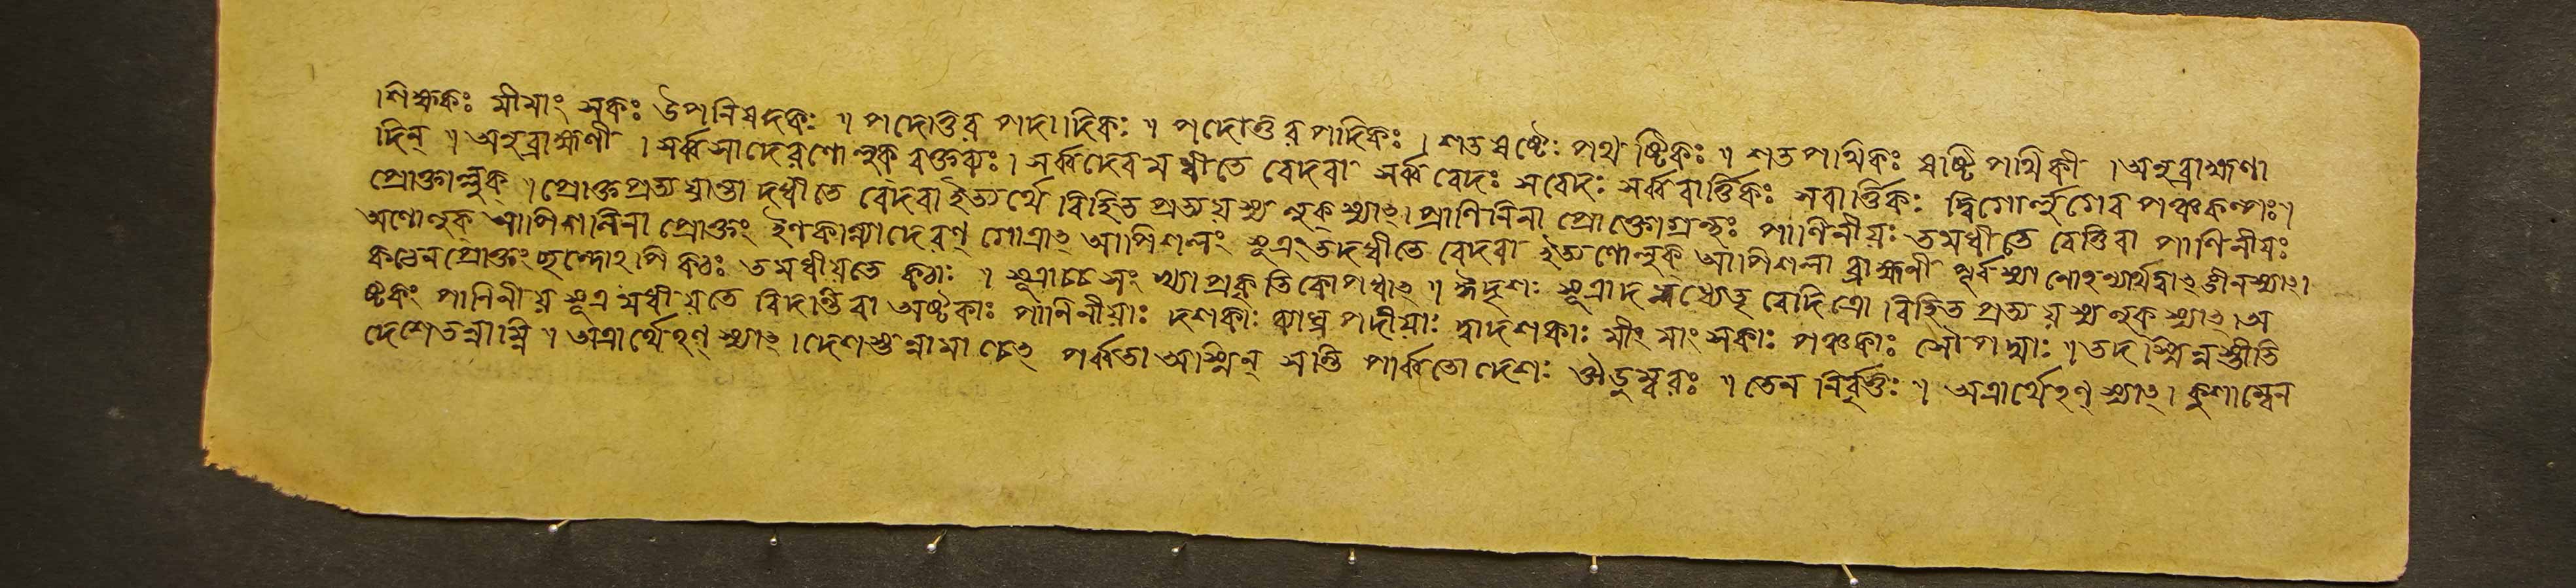 শিক্ষকঃ মীমাং সকঃ উপনিষদকঃ ॥ পদোত্তর পদাদিকঃ ॥ পদোত্তরপাদিকঃ । শতষষ্টেঃ পথ ষ্টিকঃ ॥ শতপথিকঃ ষষ্টিপথিকী । অনুব্রাহ্মণা
দিন্ ॥ অনুব্রাহ্মণী । সর্ব্বসাদেরণোলুক্ বক্তব্যঃ । সর্ব্বদেবমধীতে বেদবা সর্ব্ববেদঃ সবেদঃ সর্ব্ববার্ত্তিকঃ সবার্ত্তিকঃ দ্বিগোর্লুগেব পঞ্চকল্পঃ ।
প্রোক্তাল্লুক্ । প্রোক্তপ্রত্যয়ান্তা দধীতে বেদবা ইত্যর্থে বিহিত প্রত্যয়স্য লুক্ স্যাৎ । পাণিনিনা প্রোক্তোগ্রন্থঃ পাণিনীয়ঃ তমধীতে বেত্তিবা পাণিনীয়ঃ
অণোলুক্ আপিশলিনা প্রোক্তং ইণকান্যাদেরণ্ গোত্রাৎ আপিশলং সূত্রং তদধীতে বেদবা ইত্যণোলুক্ আপিশলা ব্রাহ্মণী পূর্বস্যা ণোঽন্যার্থত্বাৎ ঙীনস্যাৎ ।
কঠেনপ্রোক্তং ছন্দোঽপি কঠঃ তমধীয়তে কঠাঃ । সূত্রাচ্চ সং খ্যাপ্রকৃতিকোপধাৎ ॥ ঈদৃশঃ সূত্রাদধ্যেতৃ বেদিত্রো বিহিত প্রত্যয়স্য লুক্ স্যাৎ । অ
ষ্টকং পানিনীয় সূত্র মধীয়তে বিদন্তিবা অষ্টকাঃ পানিনীয়াঃ দশকাঃ ব্যাঘ্রপদীয়াঃ দ্বাদশকাঃ মীং মাং সকাঃ পঞ্চকাঃ সৌপদ্মাঃ ॥ তদ স্মিন্নস্তীতি
দেশেতন্নাম্নি ॥ অত্রার্থেঽণ্ স্যাৎ । দেশস্তন্নামা চেৎ পর্ব্বতা অস্মিন্ সন্তি পার্ব্বতোদেশঃ ঔডুম্বরঃ ॥ তেন নির্বৃত্তঃ ॥ অত্রার্থেঽণ্ স্যাৎ । কুশাম্বেন